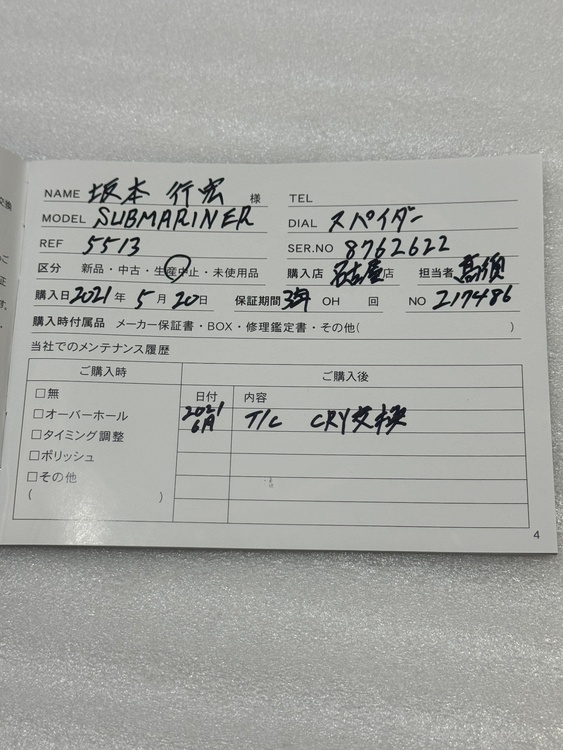 NAME 坂本 行宏 様 TEL
MODEL SUBMARINER DIAL スパイダー
REF 5513 SER.NO 8762622
区分 新品・中古・生産中止・未使用品 購入店 名古屋店 担当者 高須
購入日 2021年 5月 20日 保証期間 3年 OH 回 NO 217486
購入時付属品 メーカー保証書・BOX・修理鑑定書・その他( )
当社でのメンテナンス履歴
ご購入時 ご購入後
□無 日付 内容
□オーバーホール 2021 6月 T/C CRY交換
□タイミング調整
□ポリッシュ
□その他
( )
4